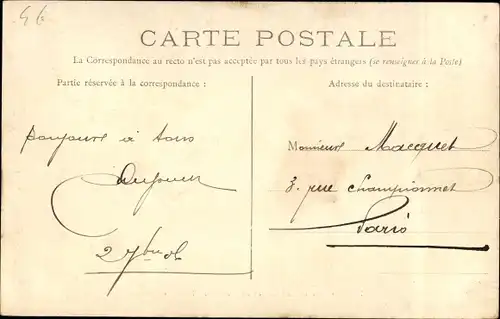 CARTE POSTALE
La Correspondance au recto n'est pas acceptée par tous les pays étrangers (se renseigner à la Poste)
Partie réservée à la correspondance :
Adresse du destinataire :
bonjour à tous
2 7bre 06
Monsieur Macquet
8. rue Championnet
Paris